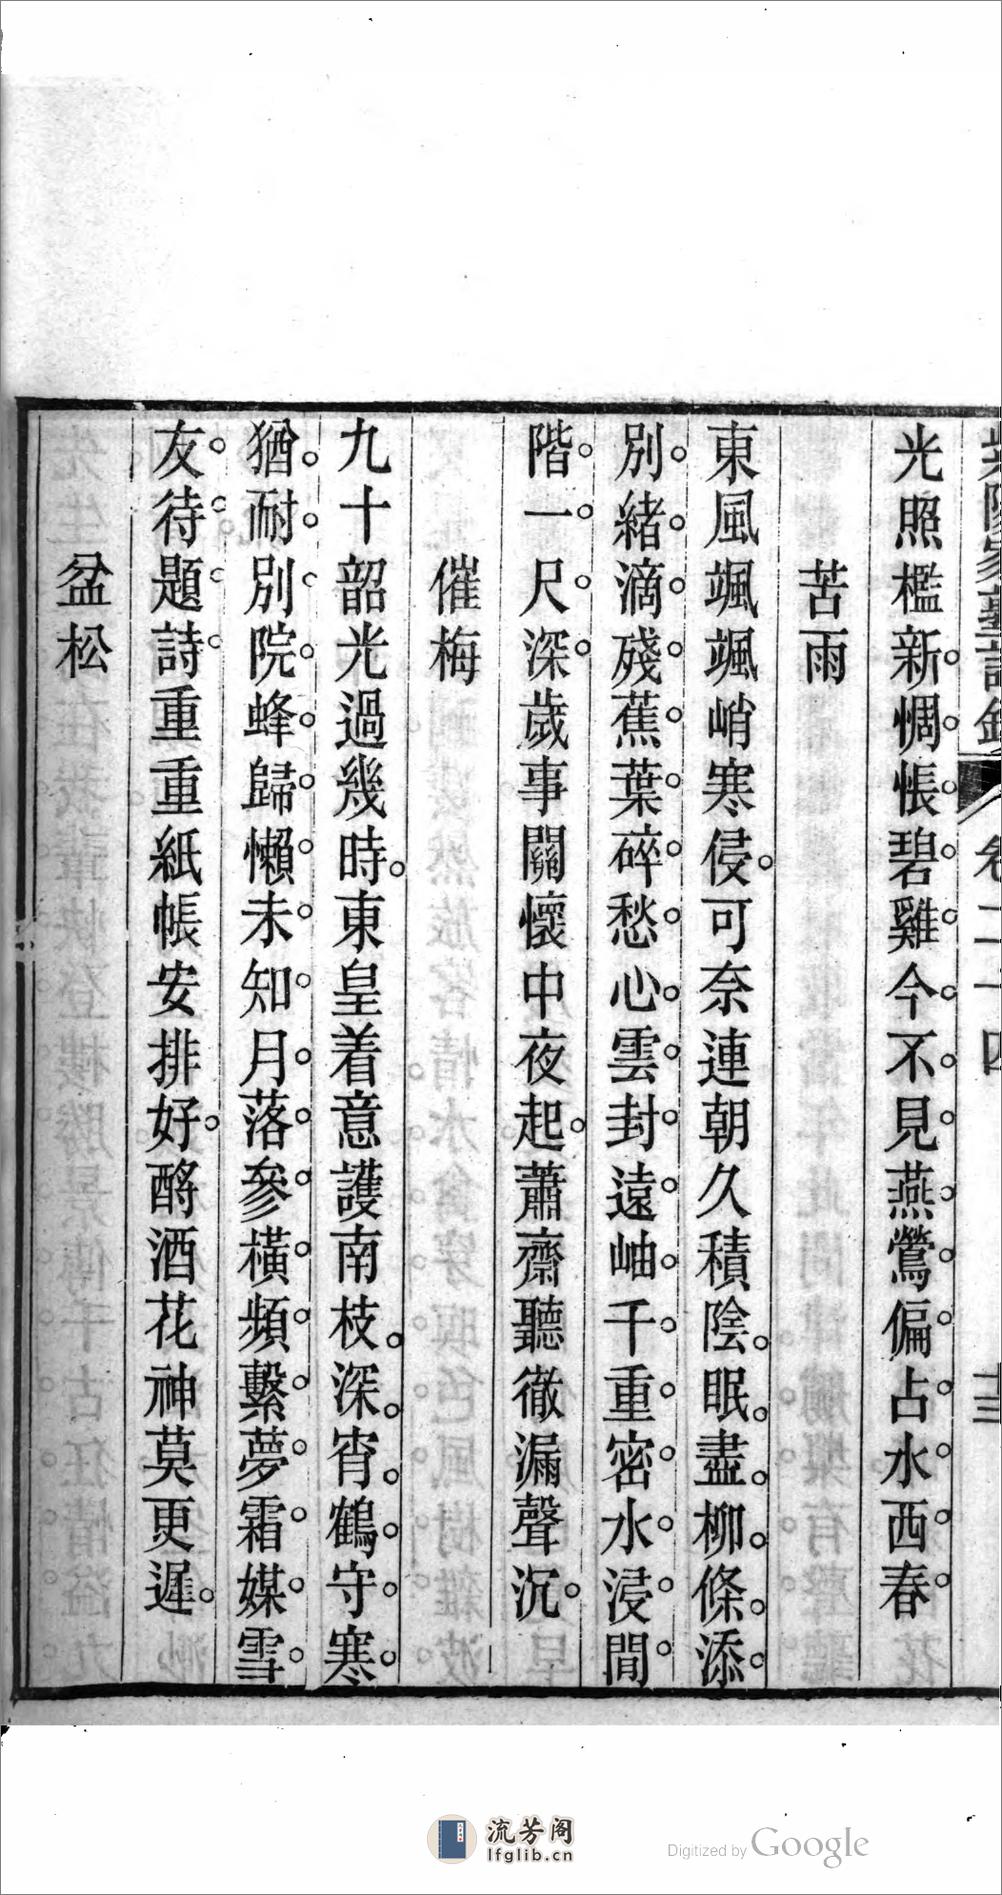 卷二十四
光照檻新惆悵碧雞今不見燕鶯偏占水西春
苦雨
東風颯颯峭寒侵可奈連朝久積陰眠盡柳條添
別緒滴殘蕉葉碎愁心雲封遠岫千重密水浸閒
階一尺深歲事關懷中夜起蕭齋聽徹漏聲沉
催梅
九十韶光過幾時東皇着意護南枝深宵鶴守寒
猶耐別院蜂歸懶未知月落參橫頻繫夢霜媒雪
友待題詩重重紙帳安排好酹酒花神莫更遲
盆松
流芳阁
lfglib.cn
Digitized by Google